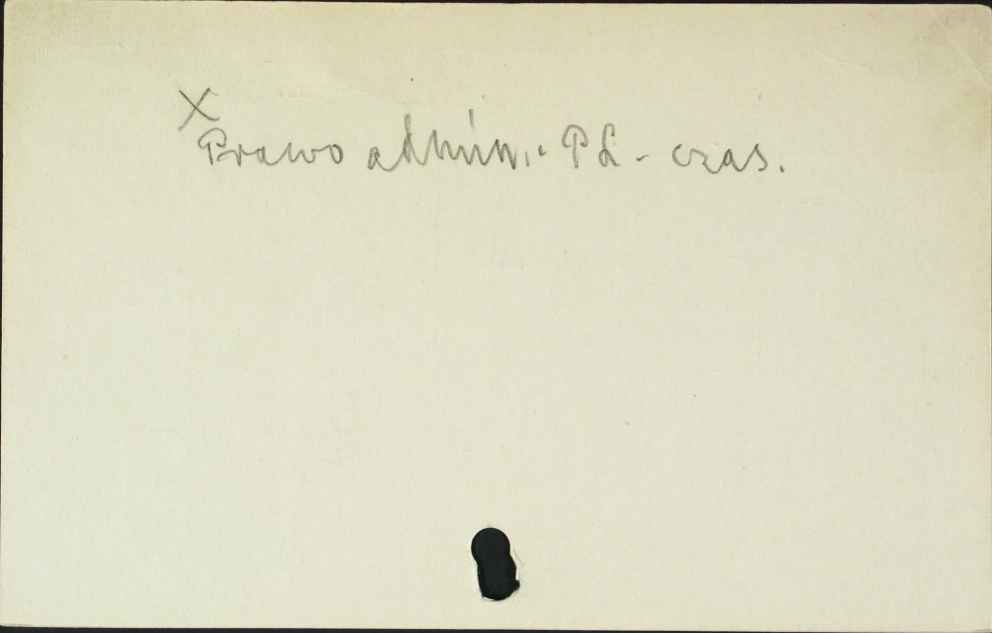 X
Prawo admin. - PL - czas.